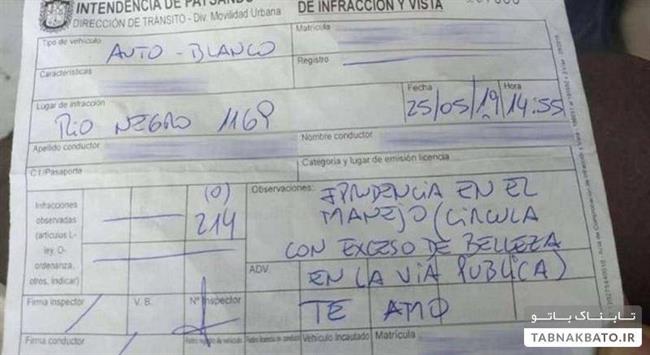 INTENDENCIA DE PAYSANDÚ
DIRECCIÓN DE TRÁNSITO - Div. Movilidad Urbana
DE INFRACCIÓN Y VISTA
Tipo de vehículo
AUTO - BLANCO
Matrícula
Características
Registro
Lugar de infracción
RIO NEGRO 1169
Fecha
25/05/19
Hora
14:55
Apellido conductor
Nombre conductor
C.I/Pasaporte
Categoría y lugar de emisión licencia
Infracciones
observadas
(artículos L-
ley, O-
ordenanza,
otros, indicar)
(O)
214
Observaciones:
IPRUDENCIA EN EL
MANEJO (CIRCULA
CON EXCESO DE BELLEZA
EN LA VIA PUBLICA)
TE AMO
ADV.
Firma inspector
V. B.
Nº Inspector
Firma conductor
Vehículo Incautado
Matrícula
تابناک باتو
TABNAKBATO.IR